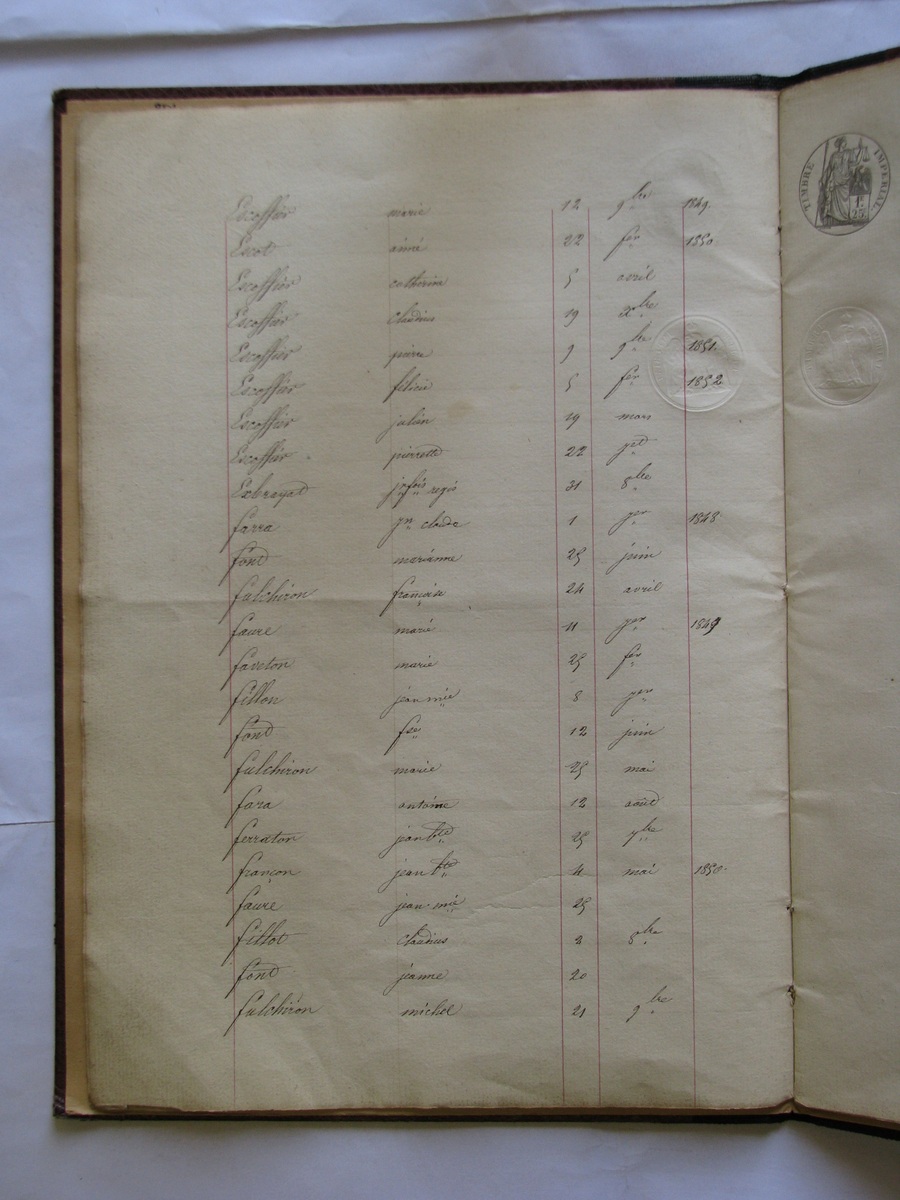 Escoffier marie 12 9bre 1849.
Escot aimé 22 fer 1850.
Escoffier catherine 5 avril
Escoffier claudius 19 Xbre
Escoffier pierre 9 9bre 1851.
Escoffier félicie 5 fer 1852
Escoffier julien 19 mars
Escoffier pierrette 22
Exbrayat régis 31 8bre
farra jn claude 1 jer 1848
font marianne 25 juin
fulchiron françoise 24 avril
faure marie 11 jer 1849
faveton marie 25 fer
fillon jean mie 8 jer
font fse 12 juin
fulchiron marie 25 mai
fara antoine 12 août
ferraton jean bte 25 7bre
françon jean bte 4 mai 1850.
faure jean mie 25
fillot claudius 2 8bre
font jeanne 20
fulchiron michel 21 9bre
TIMBRE IMPERIAL.
1f 25